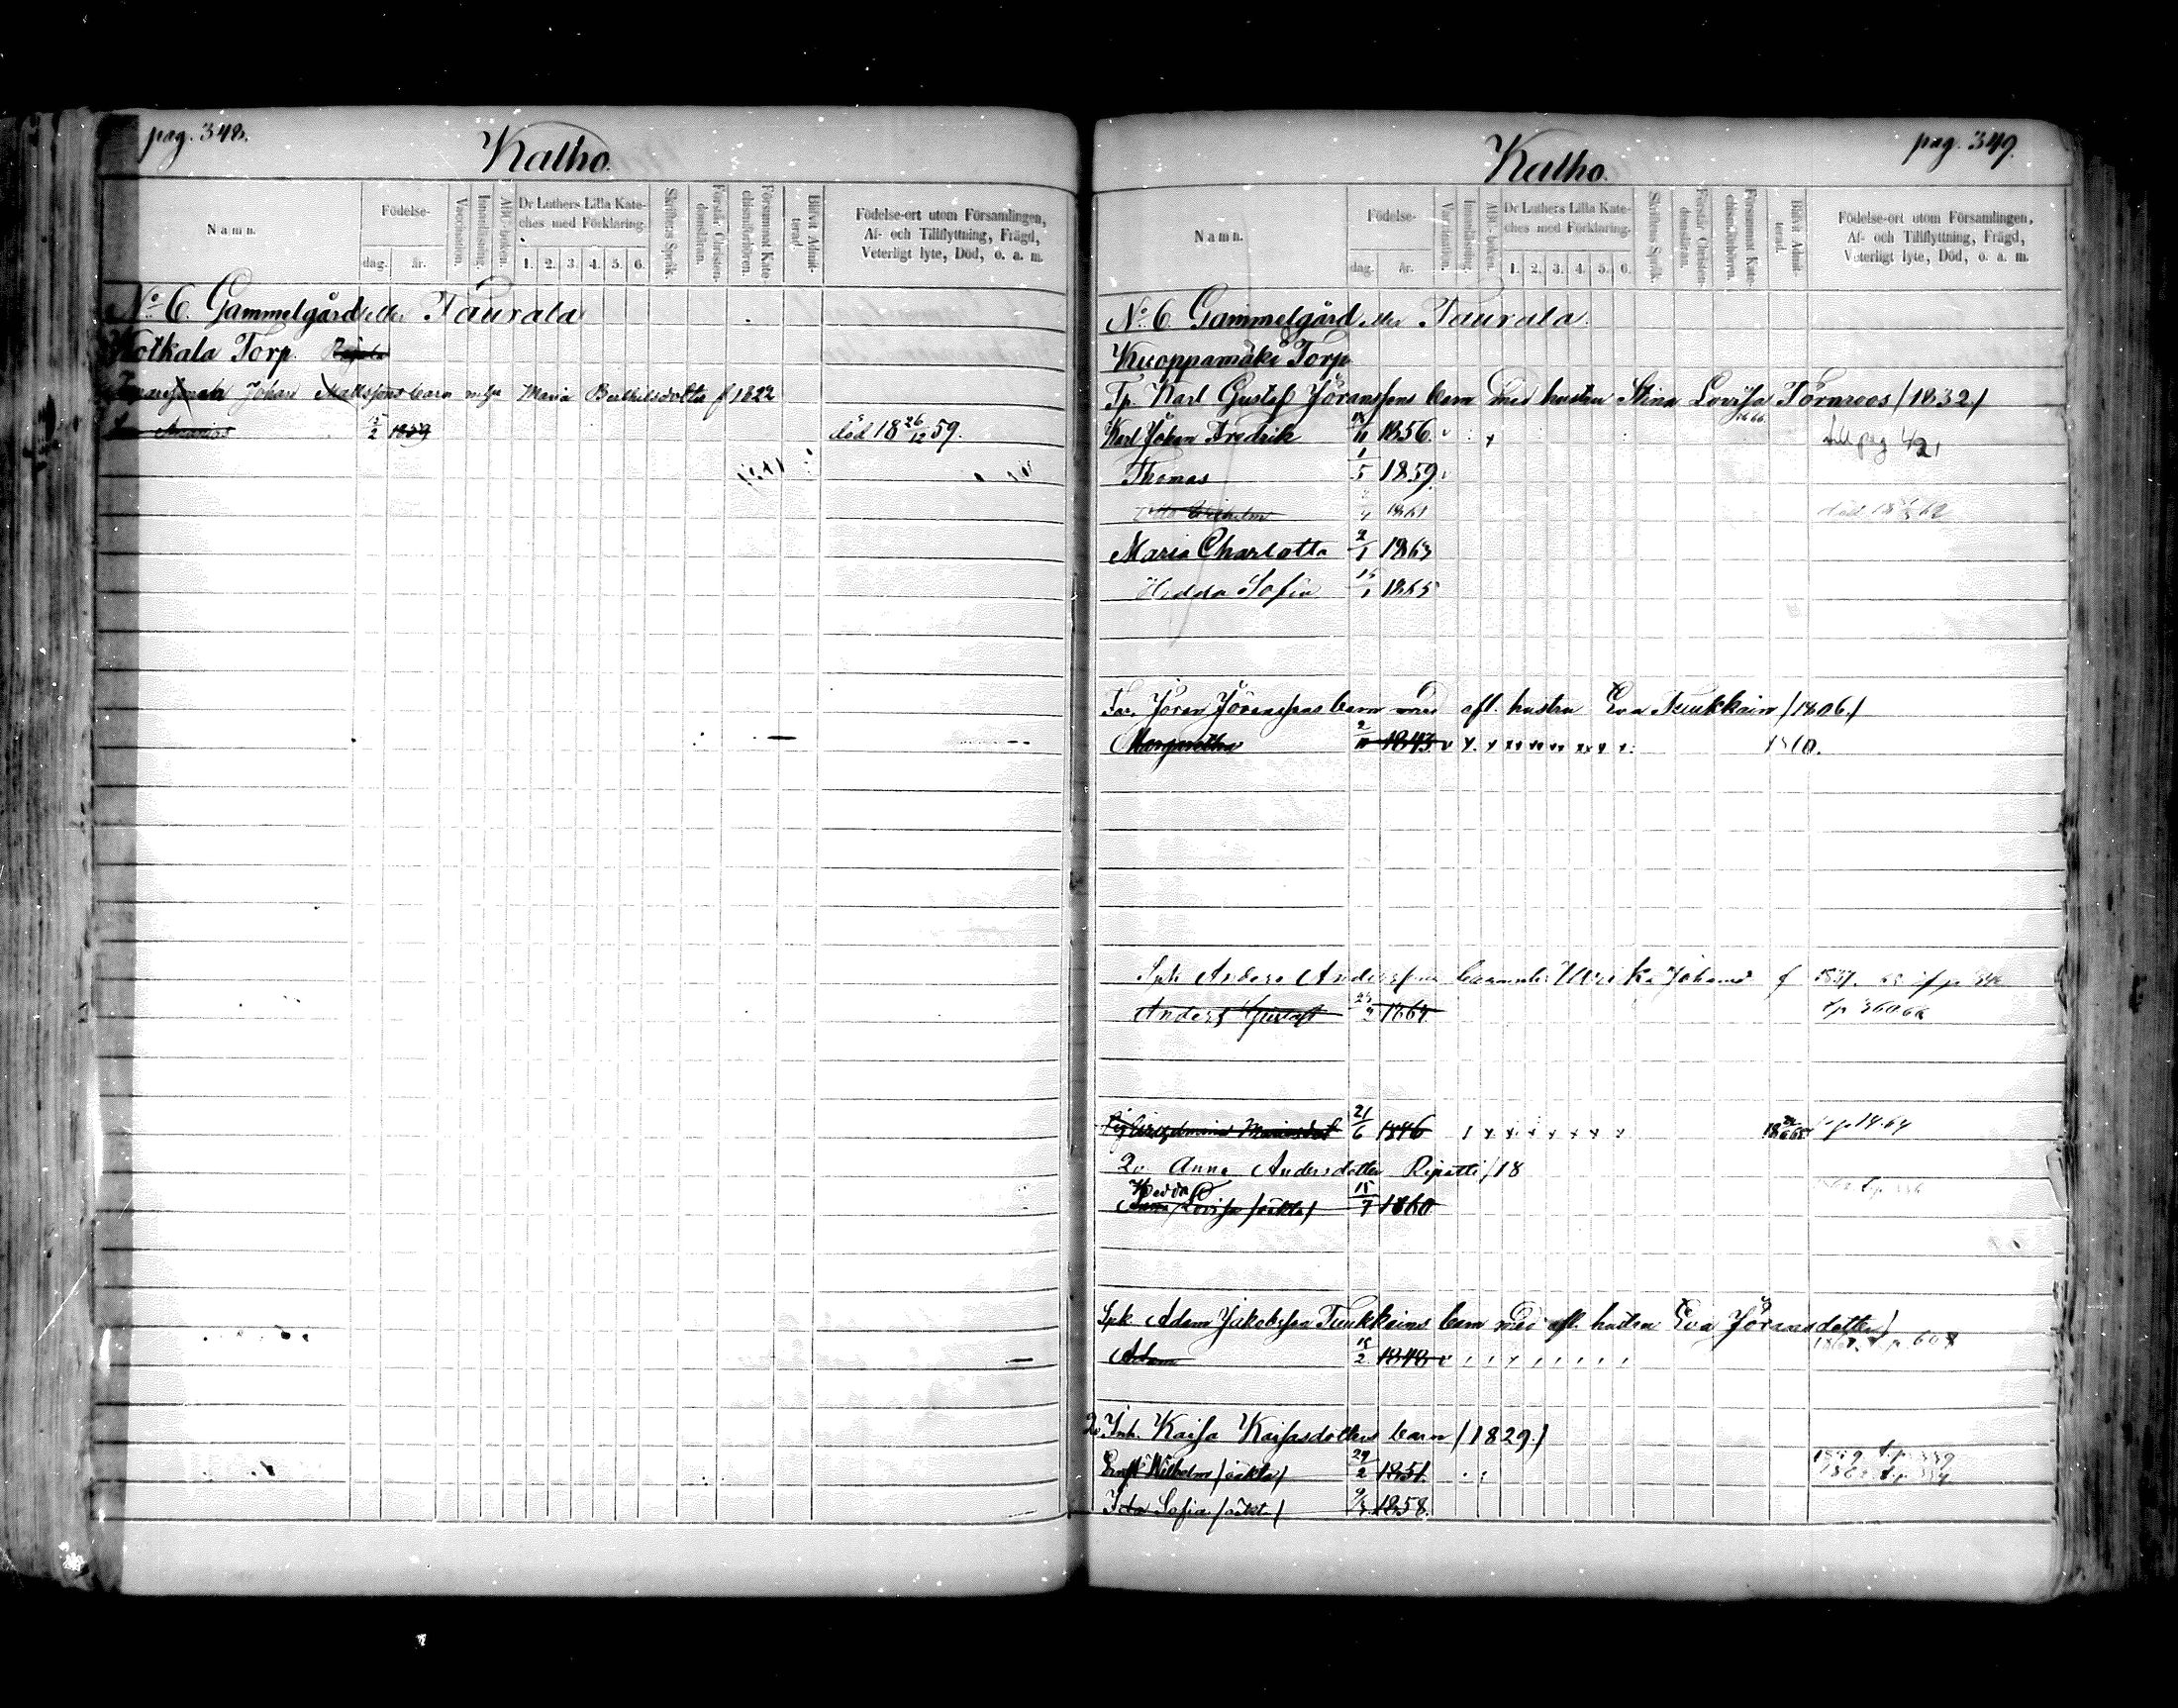 pag. 348.
Kalho.
Namn.
Födelse-
dag.
år.
Vaccination.
Innanläsning.
ABC-boken.
Dr Luthers Lilla Kate-
ches med Förklaring.
1. 2. 3. 4. 5. 6.
Skriftens Språk.
Förstår Christen-
domsläran.
Försummat Kate-
chismiförhören.
Blifvit Admit-
terad.
Födelse-ort utom Församlingen,
Af- och Tillflyttning, Frägd,
Veterligt lyte, Död, o. a. m.
No 6. Gammelgård eller Taurala
Kotkala Torp.
Johan Matssons barn Maria Bertilsdotter f 1822
2 1859 död 18 26/12 59.
pag. 349.
Kalho.
Namn.
Födelse-
dag.
år.
Vaccination.
Innanläsning.
ABC-boken.
Dr Luthers Lilla Kate-
ches med Förklaring.
1. 2. 3. 4. 5. 6.
Skriftens Språk.
Förstår Christen-
domsläran.
Försummat Kate-
chismiförhören.
Blifvit Admit-
terad.
Födelse-ort utom Församlingen,
Af- och Tillflyttning, Frägd,
Veterligt lyte, Död, o. a. m.
No 6 Gammelgård eller Taurala
Kuoppamäki Torp
Tp. Karl Gustaf Jöranssons barn med hustru Stina Lovisa Törnroos /1832/
1866
Karl Johan Fredrik 11 1856. till pag 421
Thomas 1/5 1859
Wilhelm 4 1861 död 18 62
Maria Charlotta 2/1 1863
Hedda Sofia 15/1 1865
Jöran Jöranssons barn med afl. hustru Eva Tuukkain /1806/
Margaretha 2/11 1843 1860.
Sph Anders Anderssons barn Ulrika Johansd f 1837.
Anders Gustaf 23/2 1864 t p 360 66
21/6 1846 t p 14. 64
2o Anna Andersdotter Ripatti /18
Hedda
Lovisa /oäkta/ 15/7 1860
Sph Adam Jakobsson Tuukkains barn med afl. hustru Eva Jöransdotter/
Adam 2 1848
2o Inh. Kaisa Kaisasdotters barn /1829./
Ernst Wilhelm /oäkta/ 29/2 1851. 1859 t.p. 339
Ida Sofia /oäkta/ 1858.